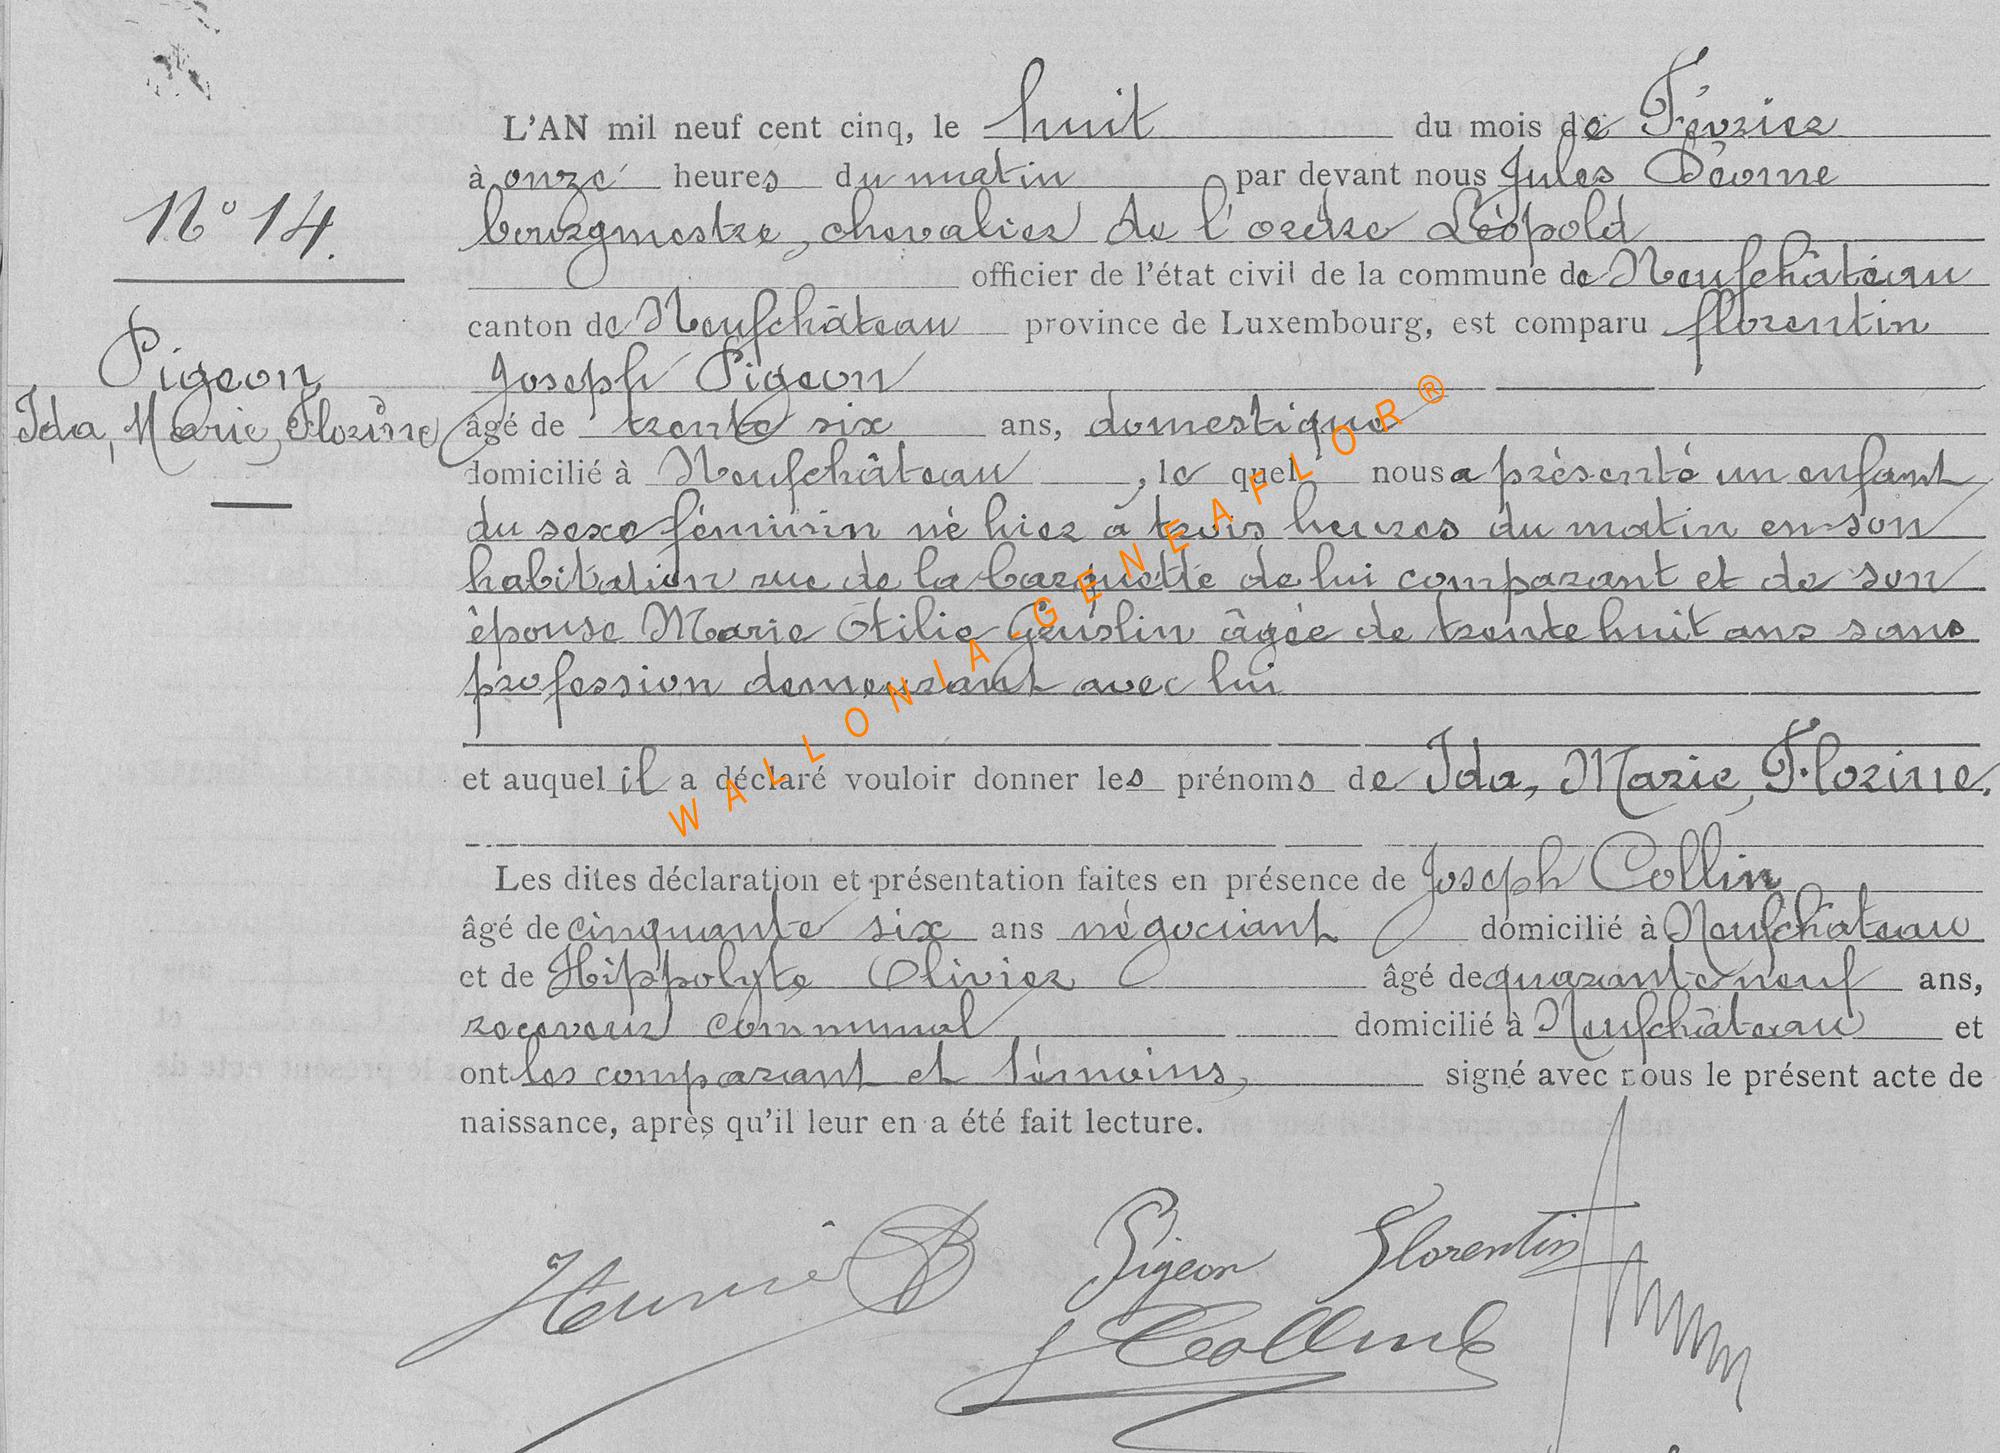 L'AN mil neuf cent cinq, le huit du mois de Février
à onze heures du matin par devant nous Jules
N° 14.
bourgmestre, chevalier de l'ordre Léopold
officier de l'état civil de la commune de Neufchâteau
canton de Neufchâteau province de Luxembourg, est comparu florentin
Pigeon
Joseph Pigeon
Ida, Marie, Florine
âgé de trente six ans, domestique
domicilié à Neufchâteau, le quel nous a présenté un enfant
du sexe féminin né hier à trois heures du matin en son
habitation rue de la barquette de lui comparant et de son
épouse Marie Otilie âgée de trente huit ans sans
profession demeurant avec lui
WALLONIA-GENEAFLOR®
et auquel il a déclaré vouloir donner les prénoms de Ida, Marie, Florine.
Les dites déclaration et présentation faites en présence de Joseph Collin
âgé de cinquante six ans négociant domicilié à Neufchâteau
et de Hippolyte Olivier âgé de quarante neuf ans,
receveur communal domicilié à Neufchâteau et
ont les comparant et témoins, signé avec nous le présent acte de
naissance, après qu'il leur en a été fait lecture.
Pigeon Florentin
J Collin